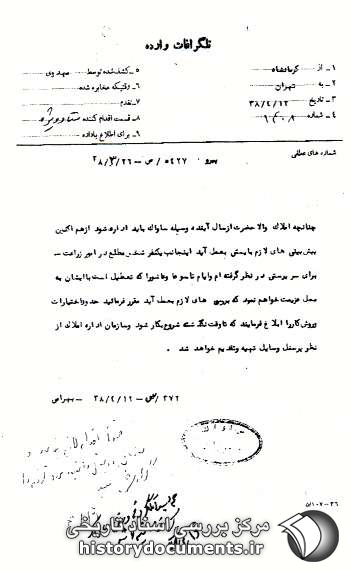 تلگرافات وارده
۱ـ از کرمانشاه
۲ـ به تهران
۳ـ تاریخ ۳۸/۴/۱۲
۴ـ شماره ۹۴۰۸
۵ـ کشف شده توسط مهدوی
۶ـ وقتیکه مخابره شده:
۷ـ تقدم
۸ـ قسمت اقدام کننده ستاد ویژه
۹ـ برای اطلاع بداده
شماره های عطفی پیرو ۵۴۲۷/ص – ۳۸/۳/۲۶
چنانچه املاک والا حضرت ازسال آینده وسیله ساواک باید اداره شود ازهم اکنون
پیش بینی های لازم بایستی بعمل آید اینجانب یکنفر شخص مطلع در امور زراعت
برای سر پرستی در نظر گرفته ام وایام تاسوعا وعاشورا که تعطیل است باایشان به
محل عزیمت خواهم نمود که بررسی های لازم بعمل آید مقرر فرمائید حدود اختیارات
وروش کاررا ابلاغ فرمایند که تاوقت نگذشته شروع بکار شود وسازمان اداره املاک از
نظر پرسنل وسایل تهیه وتقدیم خواهد شد .
۳۷۲/ص – ۳۸/۴/۱۲ – بهرامی
۵/۱۰۲-۳۶
مرکز بررسی اسناد تاریخی
historydocuments.ir